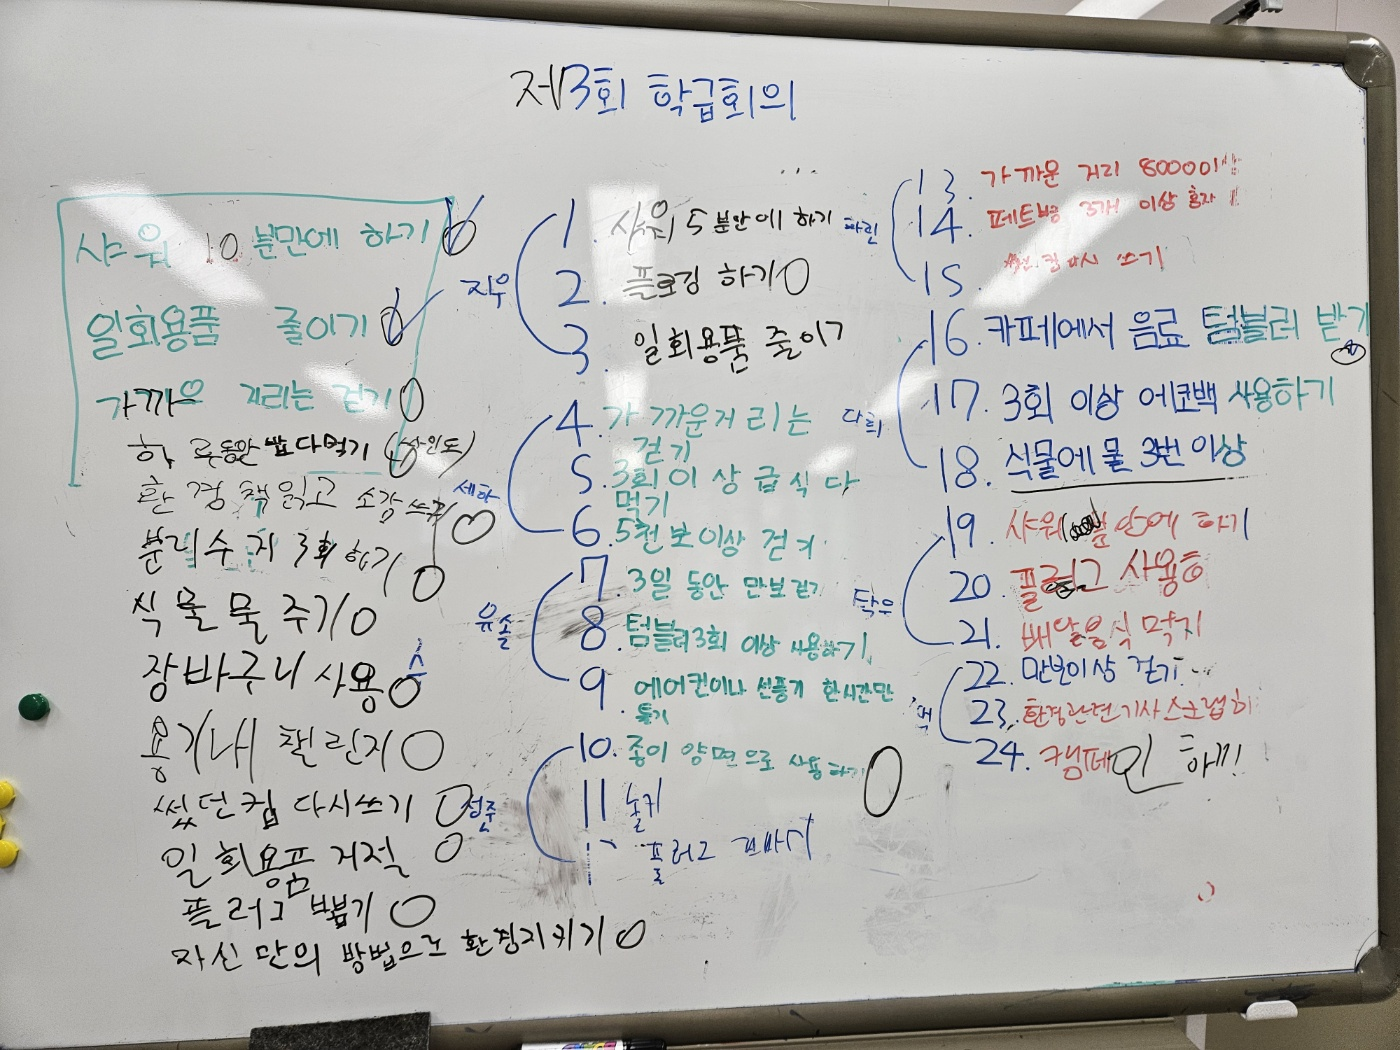 제3회 학급회의
샤워 10분만에 하기
일회용품 줄이기
가까운 거리는 걷기
하루동안 밥 다먹기
환경책읽고 소감쓰기
분리수거 3회 하기
식물 물 주기
장바구니 사용
용기내 챌린지
썼던컵 다시쓰기
일회용품 거절
플러그 뽑기
자신만의 방법으로 환경지키기
지우
1. 샤워 5분만에 하기
2. 플로깅 하기
3. 일회용품 줄이기
세하
4. 가까운거리는
걷기
5. 3회이상 급식 다
먹기
6. 5천보이상 걷기
유솔
7. 3일 동안 만보걷기
8. 텀블러3회 이상 사용하기
9. 에어컨이나 선풍기 한시간만
틀기
성준
10. 종이 양면으로 사용하기
11
플러그
13. 가까운 거리 8000이상
14. 페트병 3개 이상
15. 컵 다시 쓰기
16. 카페에서 음료 텀블러 받기
17. 3회 이상 에코백 사용하기
18. 식물에 물 3번 이상
19. 샤워 분 안에 하기
20. 플러그 사용
21. 배달음식
22. 만보이상 걷기
23. 환경관련기사스크랩하
24. 캠페인 하기!